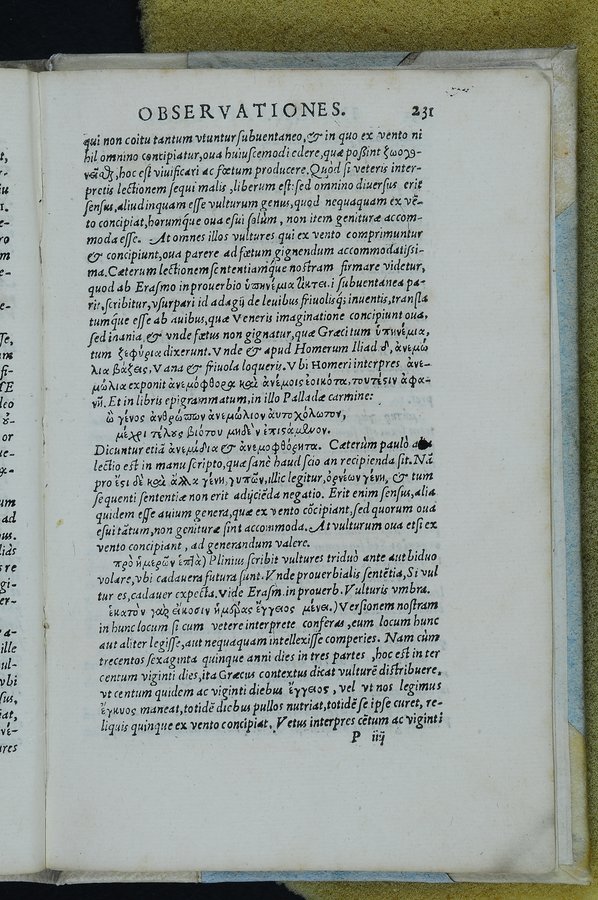 OBSERVATIONES. 231
qui non coitu tantum vtuntur subuentaneo, & in quo ex vento ni
hil omnino concipiatur, oua huiuscemodi edere, quæ poßint ζωογο-
νεῖσθζ, hoc est viuificari ac fœtum producere. Quòd si veteris inter-
pretis lectionem sequi malis, liberum est: sed omnino diuersus erit
sensus, aliud inquam esse vulturum genus, quod nequaquam ex vē-
to concipiat, horumq́ue oua esui solùm, non item genituræ accom-
moda esse. At omnes illos vultures qui ex vento comprimuntur
& concipiunt, oua parere ad fœtum gignendum accommodatissi-
ma. Cæterum lectionem sententiamq́ue nostram firmare videtur,
quod ab Erasmo in prouerbio ὑπηνέμια τίκτει. i subuentanea pa-
rit, scribitur, vsurpari id adagij de leuibus friuolisq́; inuentis, transla
tumq́ue esse ab auibus, quæ Veneris imaginatione concipiunt oua,
sed inania, & vnde fœtus non gignatur, quæ Græci tum ὑπηνέμια,
tum ζεφύρια dixerunt. Vnde & apud Homerum Iliad. δ, ἀνεμώ
λια βάζεις, Vana & friuola loqueris. Vbi Homeri interpres ἀνε-
μώλια exponit ἀνεμοφθορα καὶ ἀνέμοις ἐοικότα, τουτέςιν ἀφα-
νῆ. Et in libris epigrammatum, in illo Palladæ carmine:
ὦ γένος ἀνθρώπων ἀνεμώλιον αὐτοχόλωτον,
μέχρι τέλους βιότου μηδὲν ἐπιςάμενον.
Dicuntur etiā ἀνεμίδια & ἀνεμοφθόρητα. Cæterùm paulò
lectio est in manu scripto, quæ sanè haud scio an recipienda sit. Nā
pro ἔςι δὲ καὶ ἄλλα γένη γυπῶν, illic legitur, ὀρνέων γένη, & tum
sequenti sententiæ non erit adijciēda negatio. Erit enim sensus, alia
quidem esse auium genera, quæ ex vento cōcipiant, sed quorum oua
esui tātum, non genituræ sint accommoda. At vulturum oua etsi ex
vento concipiant, ad generandum valere.
πρὸ ἡμερῶν ἑπτὰ) Plinius scribit vultures triduò ante aut biduo
volare, vbi cadauera futura sunt. Vnde prouerbialis sentētia, Si vul
tur es, cadauer expecta. Vide Erasm. in prouerb. Vulturis vmbra.
ἑκατὸν γὰρ εἴκοσιν ἡμέρας ἔγγειος μένει.) Versionem nostram
in hunc locum si cum vetere interprete conferas, eum locum hunc
aut aliter legisse, aut nequaquam intellexisse comperies. Nam cùm
trecentos sexaginta quinque anni dies in tres partes, hoc est in ter
centum viginti dies, ita Græcus contextus dicat vulturē distribuere,
vt centum quidem ac viginti diebus ἔγγειος, vel vt nos legimus
ἔγκυος maneat, totidē diebus pullos nutriat, totidē se ipse curet, re-
liquis quinque ex vento concipiat. Vetus interpres cētum ac viginti
P iiij